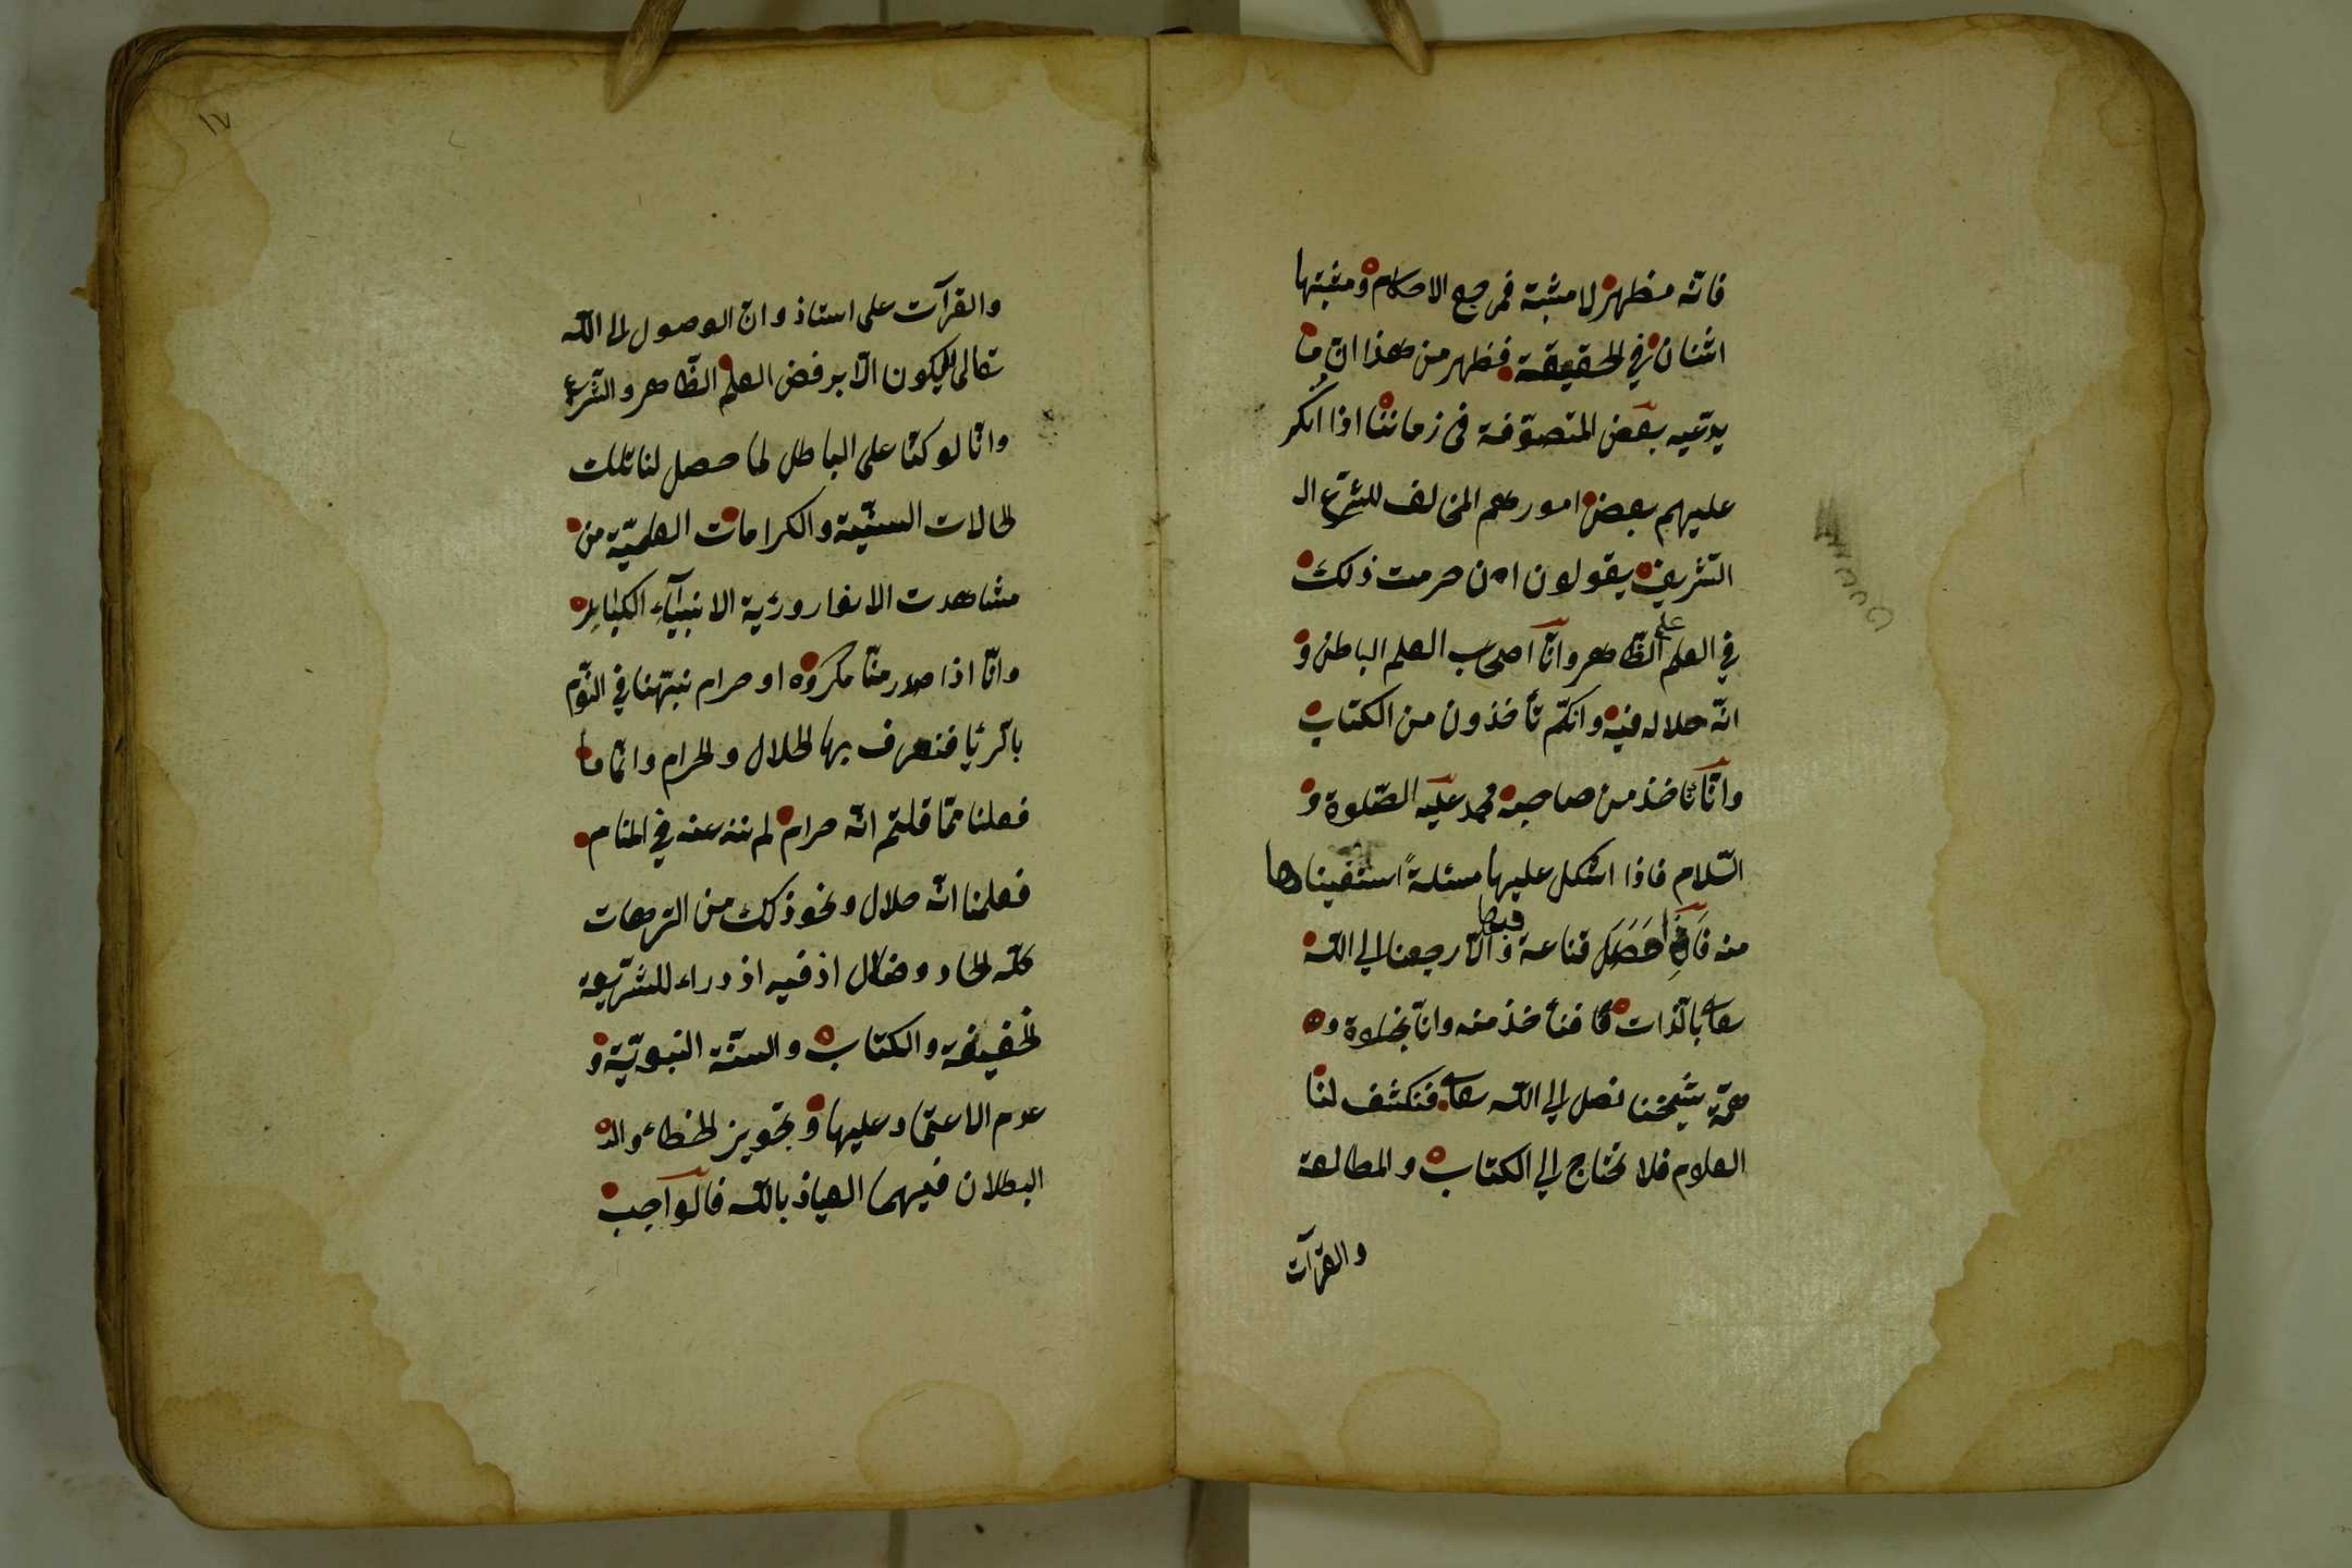 فانه مظهر لا مثبة فمرجع الاحكام ومثبتها
اثنان في الحقيقة فظهر من هذا ان ما
يدّعيه بعض المتصوّفة فى زماننا اذا انكر
عليهم بعض امورهم المخالف للشرّع ال
الشّريف يقولون ان حرمت ذلك
في العلم الظّاهر وانّا اصحاب العلم الباطن و
انّه حلاله فيه وانكم تأخذون من الكتاب
وانّا ناخذ من صاحبه محمد عليه الصّلوة و
السّلام فاذا اشكل عليها مسئلةً استفيناها
منه فان حصل قناعة فبها والّا رجعنا الى اللّه
تعالى بالذّات فنأخذ منه وانّا بخلوة و
همّة شيخنا نصل الى اللّه تعالى فنكشف لنا
العلوم فلا نحتاج الى الكتاب والمطالعة
والقرآت
١٧
والقرآت على استاذ وانّ الوصول الى اللّه
تعالى لا يكون الّا برفض العلم الظّاهر والشّرع
وانّا لو كنّا على الباطل لما حصل لنا تلك
الحالات السنيّة والكرامات العلميّة من
مشاهدت الانوار ورؤية الانبيآء الكبار
وانّا اذا صدر منّا مكروه او حرام نبّهنا في النوّم
بالرّئيا فنعرف بها الحلال والحرام وانّما ما
فعلنا ممّا قلتم انّه حرام لم ننه عنه في المنام
فعلمنا انّه حلال ونحو ذلك من الترهات
كلّه الحاد وضلال اذ فيه ازدراء للشّريعة
الحنيفة والكتاب والسنّة النّبويّة و
عدم الاعتماد عليها وتجويز الخطاء وال
البطلان فيهما العياذ باللّه فالواجب